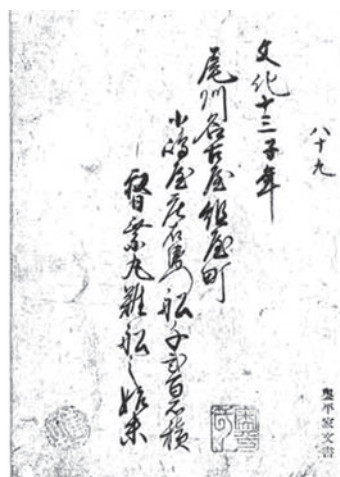 八十九
文化十三子年
尾州名古屋納屋町
小嶋屋庄右衛門船千弐百石積
督乗丸難船之始末
平家文書